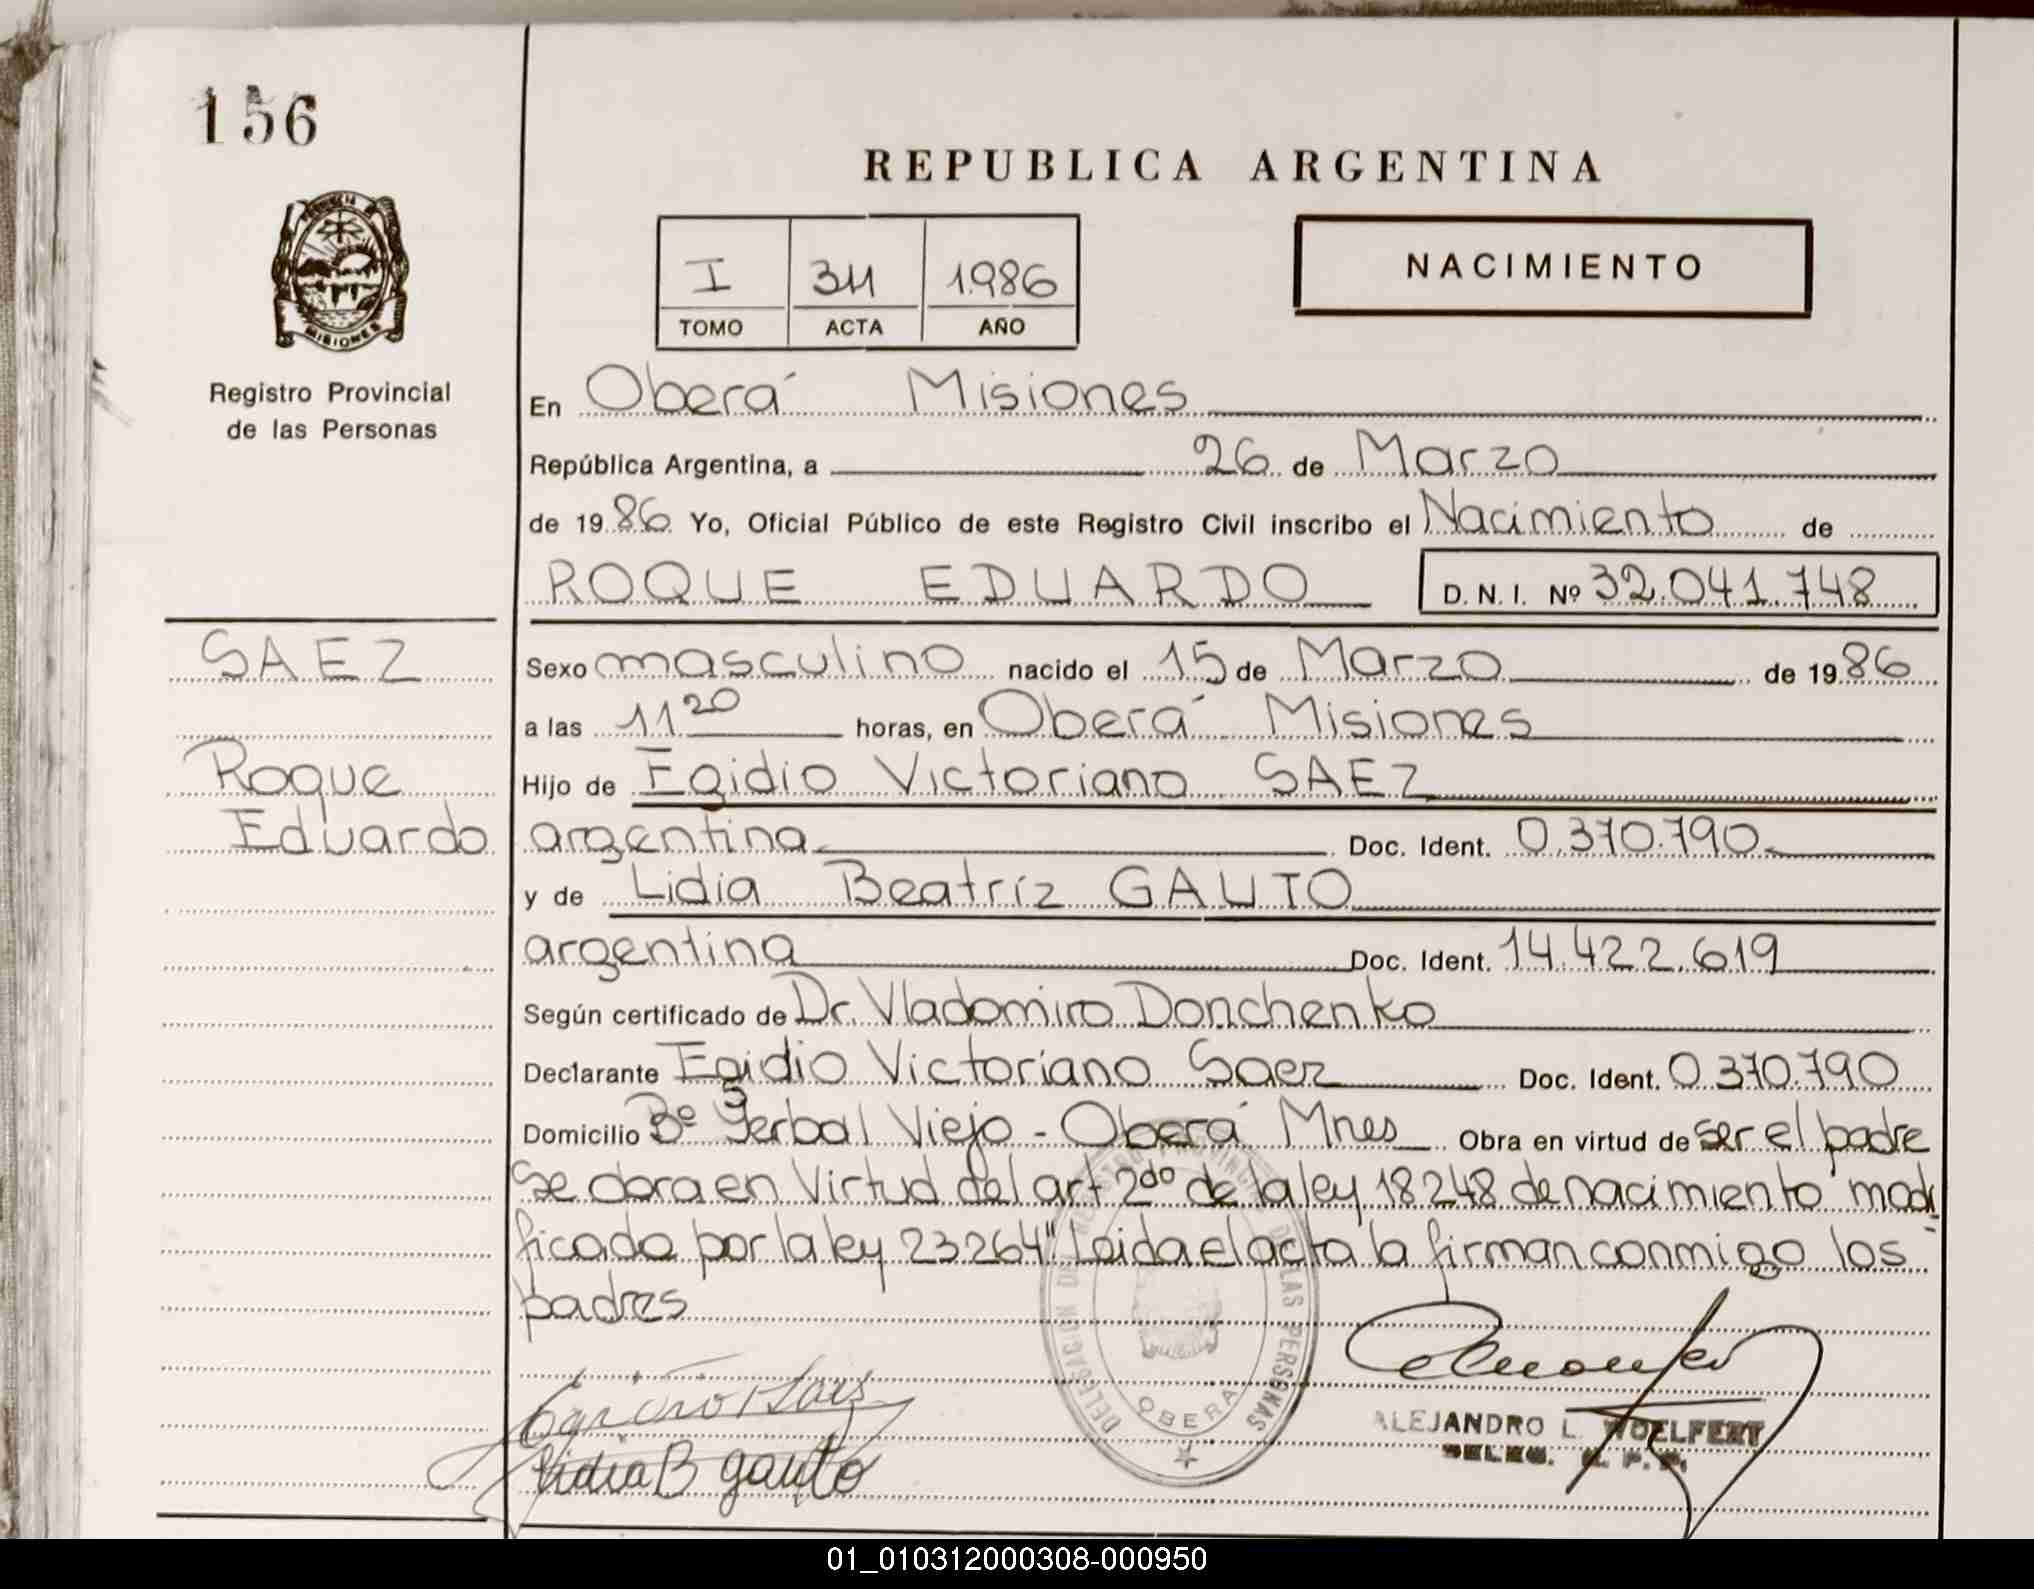 156
REPUBLICA ARGENTINA
PROVINCIA DE MISIONES
I 311 1.986
TOMO ACTA AÑO
NACIMIENTO
Registro Provincial
de las Personas
En Oberá Misiones
República Argentina, a 26 de Marzo
de 1986 Yo, Oficial Público de este Registro Civil inscribo el Nacimiento de
ROQUE EDUARDO D. N. I. Nº 32.041.748
SAEZ
Roque
Eduardo
Sexo masculino nacido el 15 de Marzo de 1986
a las 11 20 horas, en Oberá Misiones
Hijo de Egidio Victoriano SAEZ
argentina Doc. Ident. 0.370.790
y de Lidia Beatríz GAUTO
argentina Doc. Ident. 14.422.619
Según certificado de Dr. Vladomiro Donchenko
Declarante Egidio Victoriano Saez Doc. Ident. 0.370.790
Domicilio Bº Yerbal Viejo - Oberá Mnes Obra en virtud de ser el padre
Se obra en Virtud del art 2do de la ley 18248 de nacimiento modi
ficado por la ley 23.264" Leida el acta la firman conmigo los
padres
DELEGACION DEL REGISTRO PROVINCIAL DE LAS PERSONAS
OBERA
Lidia B gauto
ALEJANDRO L. WOELFERT
DELEG. R. P. P.
01_010312000308-000950